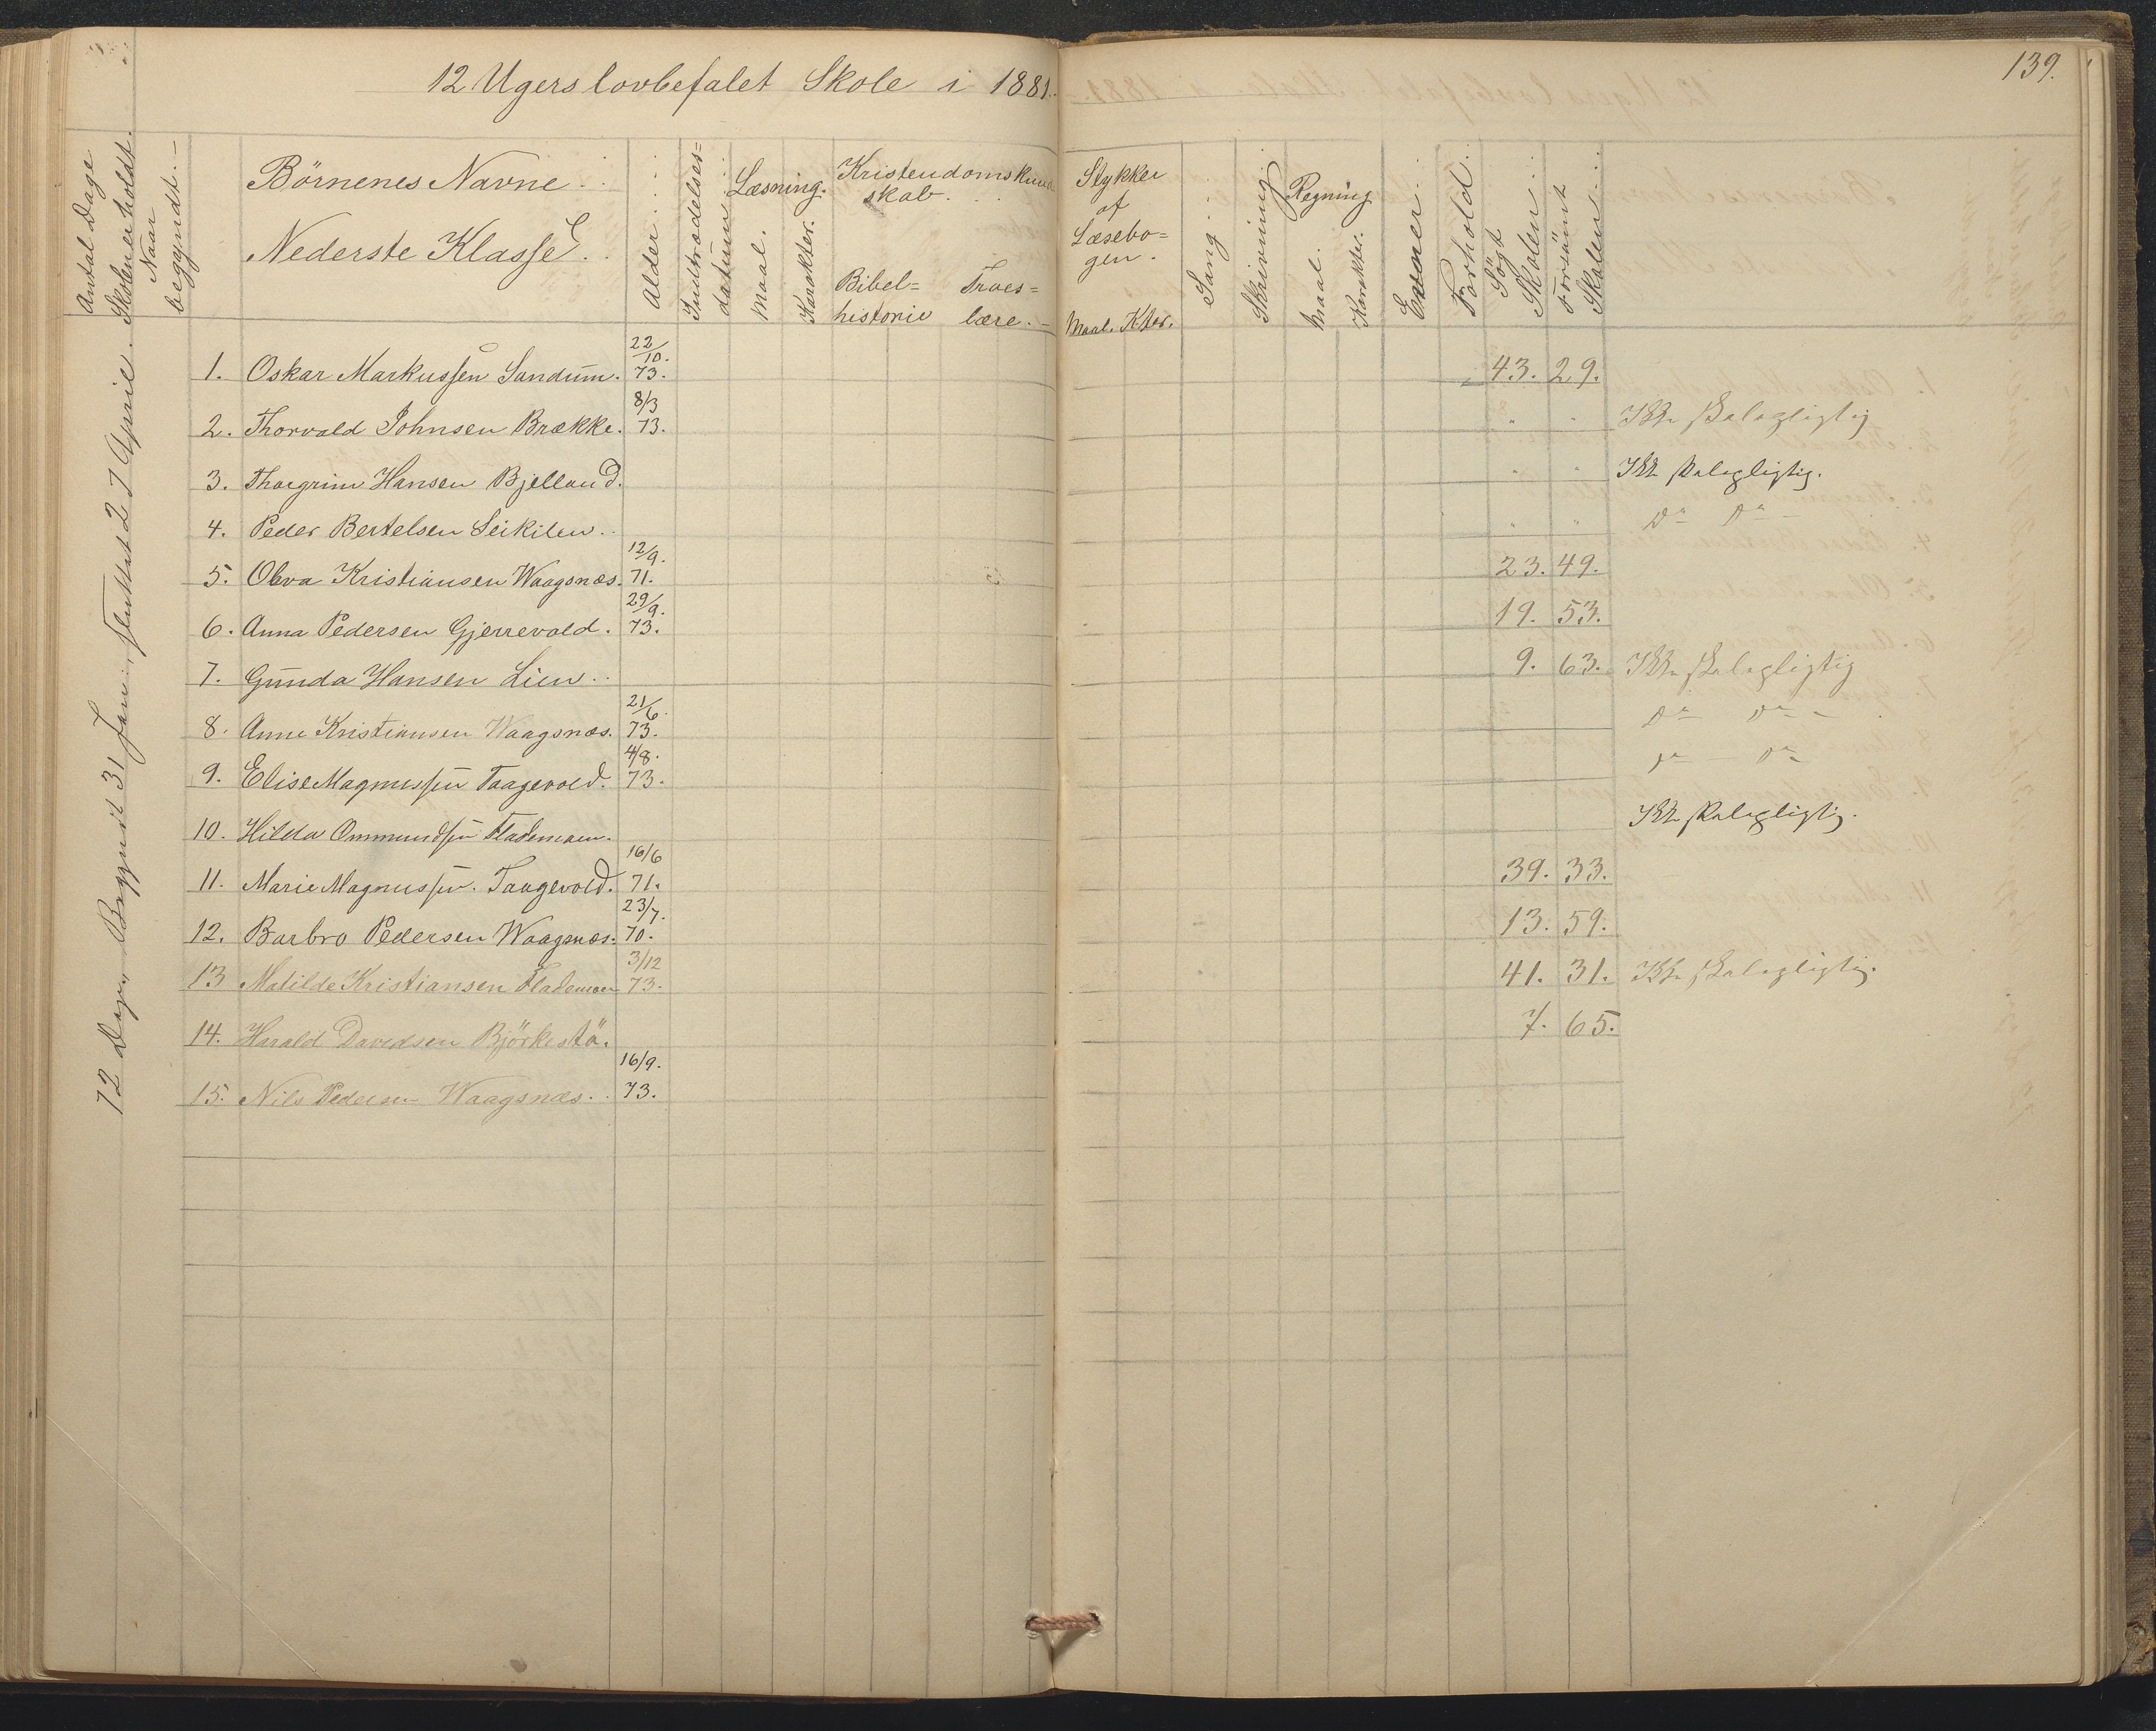 12 Ugers lovbefalet Skole i 1881.
139.
Antal Dage
Skolen er holdt.
Naar
begyndt.
Börnenes Navne
Nederste Klasse
Alder
Indtrædelses=
datum
Læsning.
Maal.
Karakter.
Kristendomskund
skab.
Bibel=
historie
Troes=
lære.
Stykker
af
Læsebo=
gen.
Maal. Kter.
Sang
Skrivning
Regning
Maal.
Karakter.
Evner
Forhold
Sögt
Skolen
Forsömt
Skolen
72 Dage, Begyndt 31 Jan: sluttet 27 April.
1. Oskar Markussen Sandum. 22/10. 73. 43. 29.
2. Thorvald Johnsen Brække. 8/3 73. " " Ikke skolepligtig
3. Thorgrim Hansen Bjelland. " " Ikke skolepligtig.
4. Peder Bertelsen Leikilen. " " Do Do
5. Olava Kristiansen Waagsnæs. 12/9. 71. 23. 49.
6. Anna Pedersen Gjerrevold. 29/9. 73. 19. 53.
7. Gunda Hansen Lien. 9. 63. Ikke skolepligtig
8. Anne Kristiansen Waagsnæs. 21/6. 73. Do Do
9. Elise Magnussen Taagevold. 4/8. 73. Do Do
10. Hilda Ommundsen Flademoen. Ikke skolepligtig.
11. Marie Magnussen. Taagevold. 16/6 71. 39. 33.
12. Barbro Pedersen Waagsnæs. 23/7. 70. 13. 59.
13 Matilde Kristiansen Flademoen 3/12 73. 41. 31. Ikke skolepligtig.
14. Harald Davidsen Björkestö. 7. 65.
15. Nils Pedersen Waagsnæs. 16/9. 73.